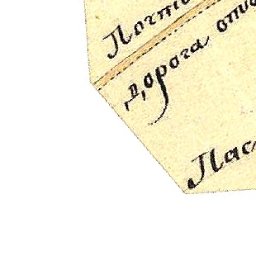 Почто
дорога отво
Пас